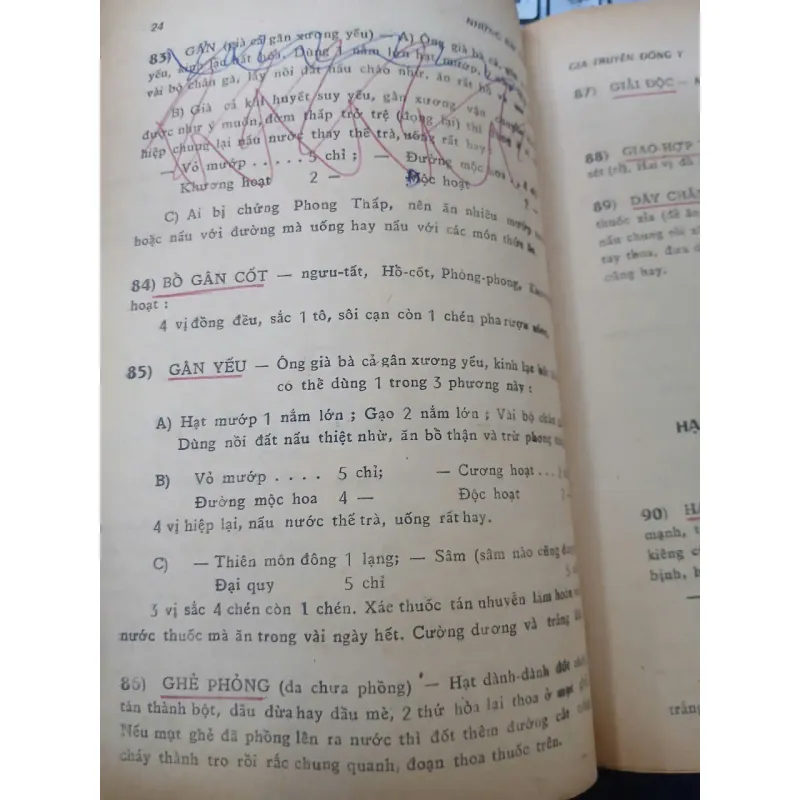 24
NHỮNG
83) GÂN (già cả gân xương yếu) — A) Ông già bà cả, gân
yếu, kinh lạc bất hòa. Dùng 1 nắm lớn hạt mướp,
vài bộ chân gà, lấy nồi đất nấu cháo nhừ, ăn rất
B) Già cả khí huyết suy yếu, gân xương vận chuyển
được như ý muốn, đờm thấp trở trệ (đọng lại) thì
hiệp chung lại nấu nước thay thế trà, uống rất hay:
— Vỏ mướp ..... 5 chỉ ; — Đường mộc hoa 4
Khương hoạt 2 — Độc hoạt 2 —
C) Ai bị chứng Phong Thấp, nên ăn nhiều mướp
hoặc nấu với đường mà uống hay nấu với các món thức ăn.
84) BỒ GÂN CỐT — ngưu-tất, Hồ-cốt, Phòng-phong,
hoạt :
4 vị đồng đều, sắc 1 tô, sôi cạn còn 1 chén pha rượu
85) GÂN YẾU — Ông già bà cả gân xương yếu, kinh lạc
có thể dùng 1 trong 3 phương này :
A) Hạt mướp 1 nắm lớn ; Gạo 2 nắm lớn ; Vài bộ chân
Dùng nồi đất nấu thiệt nhừ, ăn bồ thận và trừ phong
B) Vỏ mướp .... 5 chỉ; — Cương hoạt ...
Đường mộc hoa 4 — Độc hoạt
4 vị hiệp lại, nấu nước thế trà, uống rất hay.
C) — Thiên môn đông 1 lạng; — Sâm (sâm nào cũng
Đại quy 5 chỉ 5
3 vị sắc 4 chén còn 1 chén. Xác thuốc tán nhuyễn làm hoàn
nước thuốc mà ăn trong vài ngày hết. Cường dương và tráng
86) GHẺ PHỎNG (da chưa phồng) — Hạt dành-dành đốt
tán thành bột, dầu dừa hay dầu mè, 2 thứ hòa lại thoa ở mụt
Nếu mụt ghẻ đã phồng lên ra nước thì đốt thêm đường cát
cháy thành tro rồi rắc chung quanh, đoạn thoa thuốc trên.
GIA TRUYỀN ĐÔNG Y
87) GIẢI ĐỘC —
88) GIAO-HỢP
sét (rỉ). Hai vị đồ
89) DÂY CHẰ
thuốc xỉa (đề ăn
nấu chung rồi
tay thoa, đưa
cũng hay.
HẠ
90) HẠ
mạnh, t
kiêng c
bịnh, b
—
trắng